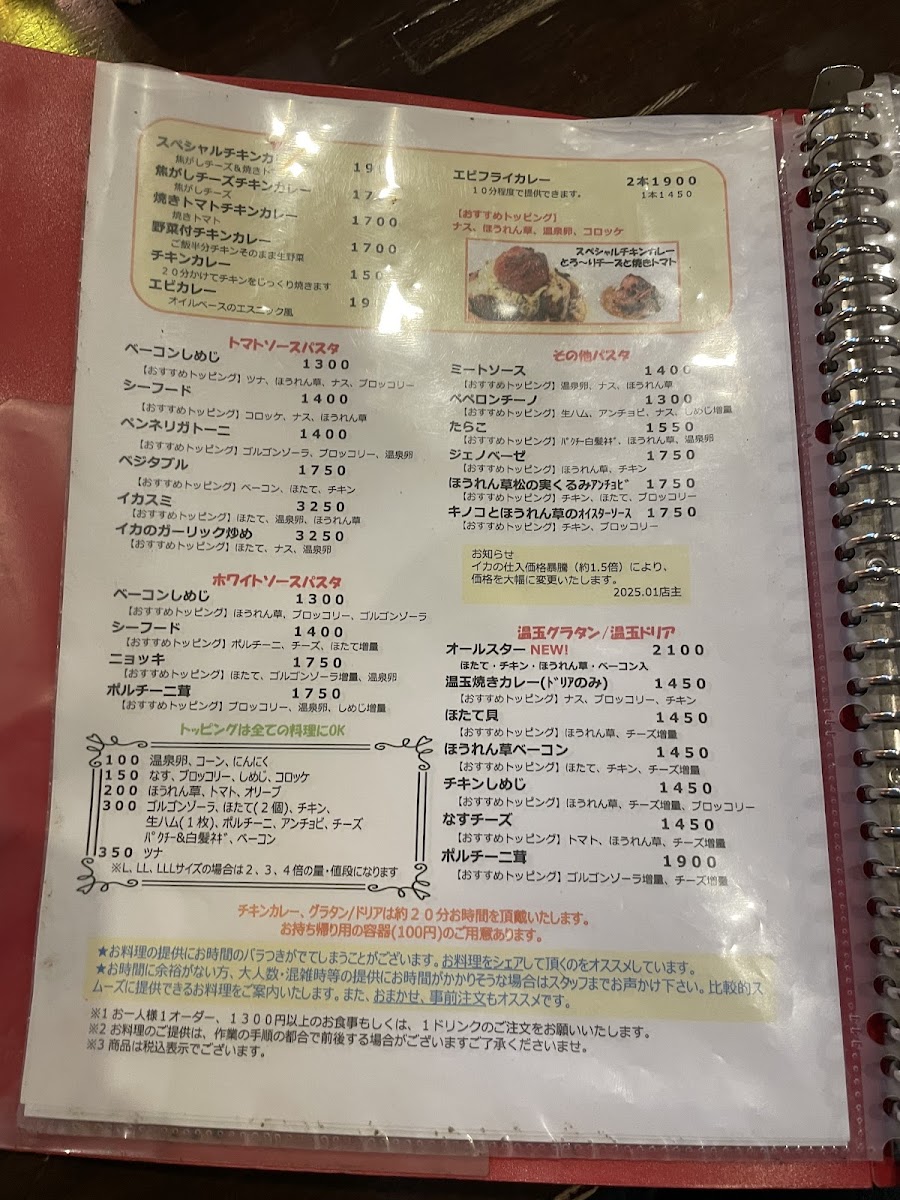 スペシャルチキンカ
焦がしチーズ&焼きト
焦がしチーズチキンカレー
焦がしチーズ
焼きトマトチキンカレー 1700
焼きトマト
野菜付チキンカレー 1700
ご飯半分チキンそのまま生野菜
チキンカレー
20分かけてチキンをじっくり焼きます
エビカレー
オイルベースのエスニック風
エビフライカレー 2本1900
10分程度で提供できます。 1本1450
【おすすめトッピング】
ナス、ほうれん草、温泉卵、コロッケ
スペシャルチキンカレー
とろ〜りチーズと焼きトマト
トマトソースパスタ
ベーコンしめじ 1300
【おすすめトッピング】ツナ、ほうれん草、ナス、ブロッコリー
シーフード 1400
【おすすめトッピング】コロッケ、ナス、ほうれん草
ペンネリガトーニ 1400
【おすすめトッピング】ゴルゴンゾーラ、ブロッコリー、温泉卵
ベジタブル 1750
【おすすめトッピング】ベーコン、ほたて、チキン
イカスミ 3250
【おすすめトッピング】ほたて、温泉卵、ほうれん草
イカのガーリック炒め 3250
【おすすめトッピング】ほたて、ナス、温泉卵
ホワイトソースパスタ
ベーコンしめじ 1300
【おすすめトッピング】ほうれん草、ブロッコリー、ゴルゴンゾーラ
シーフード 1400
【おすすめトッピング】ポルチーニ、チーズ、ほたて増量
ニョッキ 1750
【おすすめトッピング】ほたて、ゴルゴンゾーラ増量、温泉卵
ポルチーニ茸 1750
【おすすめトッピング】ブロッコリー、温泉卵、しめじ増量
トッピングは全ての料理にOK
100 温泉卵、コーン、にんにく
150 なす、ブロッコリー、しめじ、コロッケ
200 ほうれん草、トマト、オリーブ
300 ゴルゴンゾーラ、ほたて(2個)、チキン、
生ハム(1枚)、ポルチーニ、アンチョビ、チーズ
ﾊﾟｸﾁｰ&白髪ﾈｷﾞ、ベーコン
350 ツナ
※L、LL、LLLサイズの場合は2、3、4倍の量・値段になります
その他パスタ
ミートソース 1400
【おすすめトッピング】温泉卵、ナス、ほうれん草
ペペロンチーノ 1300
【おすすめトッピング】生ハム、アンチョビ、ナス、しめじ増量
たらこ 1550
【おすすめトッピング】ﾊﾟｸﾁｰ白髪ﾈｷﾞ、ほうれん草、温泉卵
ジェノベーゼ 1750
【おすすめトッピング】ほうれん草、チキン
ほうれん草松の実くるみｱﾝﾁｮﾋﾞ 1750
【おすすめトッピング】チキン、ほたて、ブロッコリー
キノコとほうれん草のｵｲｽﾀｰｿｰｽ 1750
【おすすめトッピング】チキン、ブロッコリー
お知らせ
イカの仕入価格暴騰（約1.5倍）により、
価格を大幅に変更いたします。
2025.01店主
温玉グラタン/温玉ドリア
オールスター NEW! 2100
ほたて・チキン・ほうれん草・ベーコン入
温玉焼きカレー(ﾄﾞﾘｱのみ) 1450
【おすすめトッピング】ナス、ブロッコリー、チキン
ほたて貝 1450
【おすすめトッピング】ほうれん草、チーズ増量
ほうれん草ベーコン 1450
【おすすめトッピング】ほたて、チキン、チーズ増量
チキンしめじ 1450
【おすすめトッピング】ほうれん草、チーズ増量、ブロッコリー
なすチーズ 1450
【おすすめトッピング】トマト、ほうれん草、チーズ増量
ポルチーニ茸 1900
【おすすめトッピング】ゴルゴンゾーラ増量、チーズ増量
チキンカレー、グラタン/ドリアは約20分お時間を頂戴いたします。
お持ち帰り用の容器(100円)のご用意あります。
★お料理の提供にお時間のバラつきがでてしまうことがございます。お料理をシェアして頂くのをオススメしています。
★お時間に余裕がない方、大人数・混雑時等の提供にお時間がかかりそうな場合はスタッフまでお声かけ下さい。比較的ス
ムーズに提供できるお料理をご案内いたします。また、おまかせ、事前注文もオススメです。
※1 お一人様1オーダー、1300円以上のお食事もしくは、1ドリンクのご注文をお願いいたします。
※2 お料理のご提供は、作業の手順の都合で前後する場合がございますご了承くださいませ。
※3 商品は税込表示でございます。